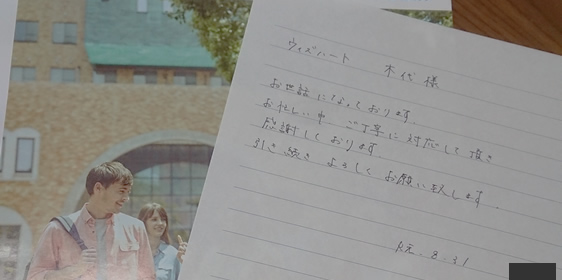 ウィズハート 木代 様
お世話になっております。
お忙しい中 ご丁寧に対応して頂き
感謝しております。
引き続き よろしく お願い致します。
R元. 8. 31